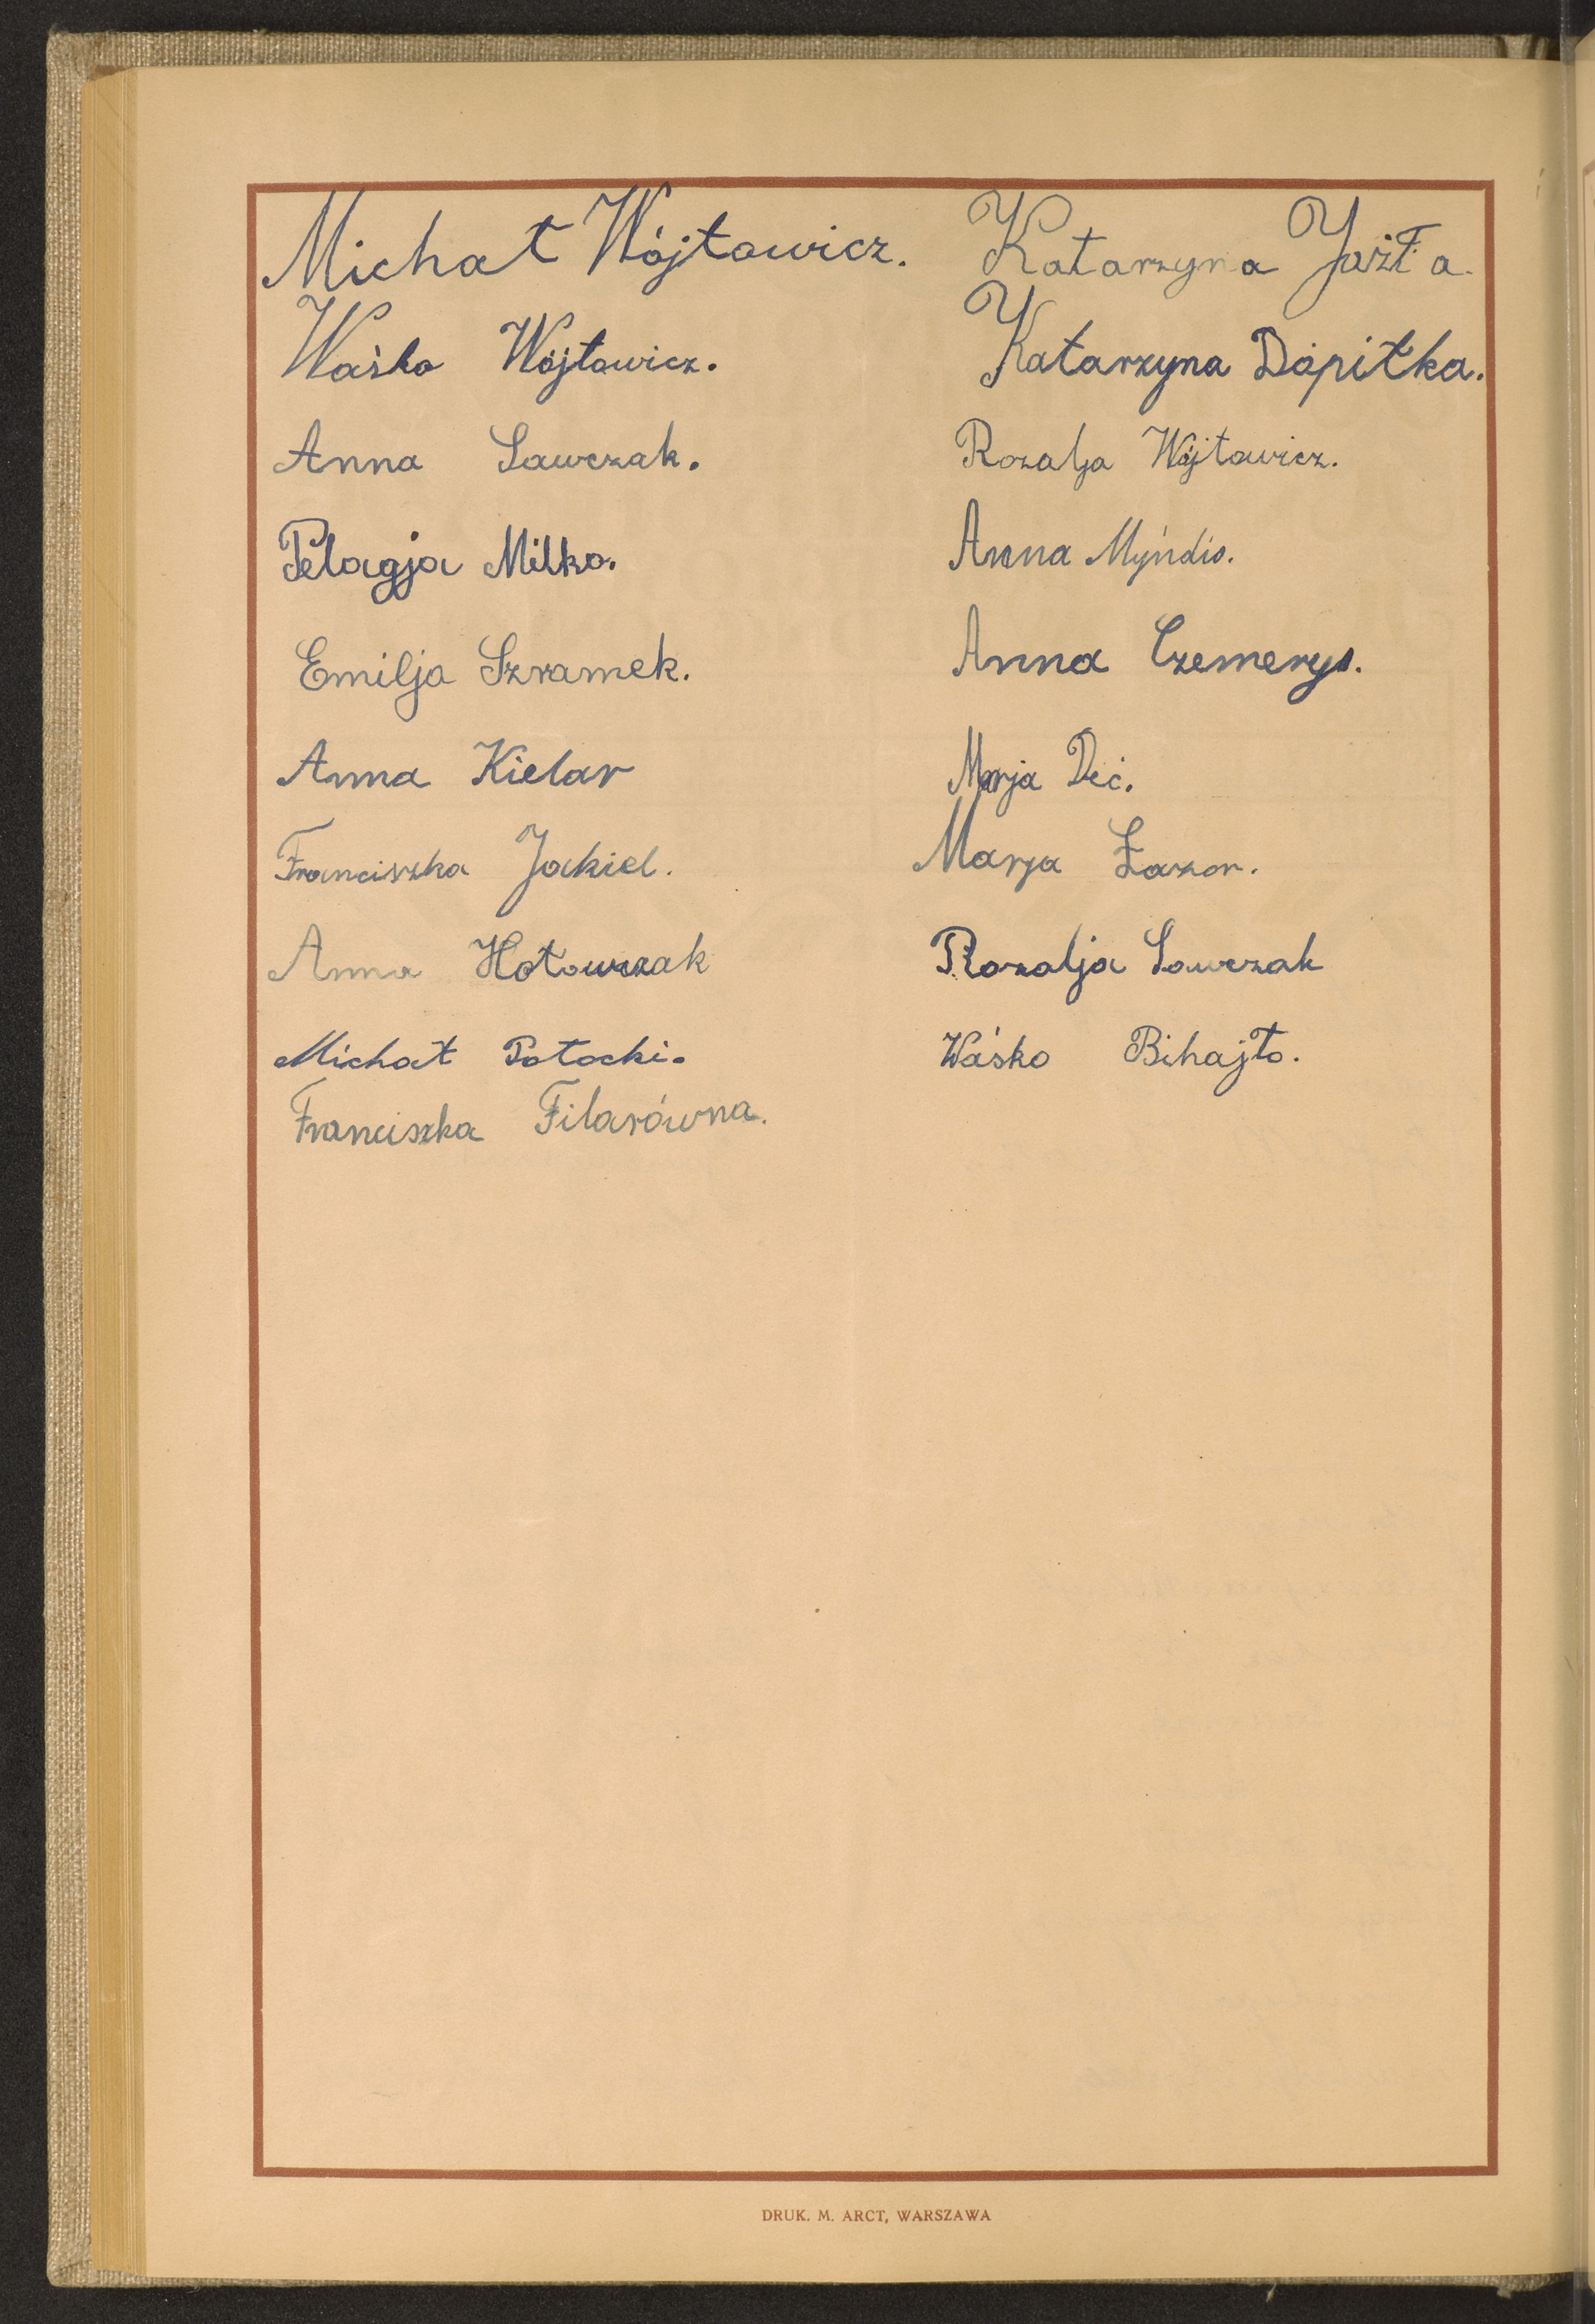 Michał Wójtowicz.
Waśko Wójtowicz.
Anna Sawczak.
Pelagja Milko.
Emilja Szramek.
Anna Kielar
Franciszka Jakiel.
Anna Hołowczak
Michał Potocki.
Franciszka Filarówna.
Katarzyna
Katarzyna Dopitka.
Rozalja Wójtowicz.
Anna Myńdis.
Anna Czemerys.
Marja Deć.
Marja Łazor.
Rozalja Sawczak
Waśko Bihajło.
DRUK. M. ARCT, WARSZAWA